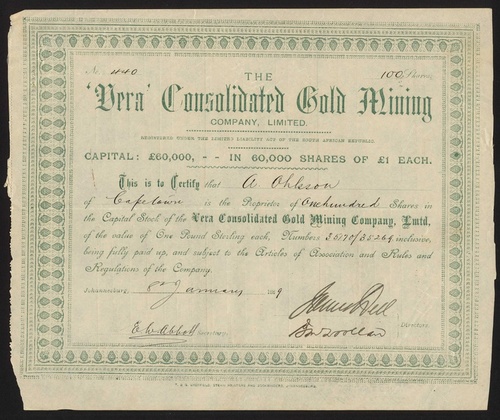 No. 440 100 Shares
THE
'Vera' Consolidated Gold Mining
COMPANY, LIMITED.
REGISTERED UNDER THE LIMITED LIABILITY LAW OF THE SOUTH AFRICAN REPUBLIC.
CAPITAL: £60,000, - - IN 60,000 SHARES OF £1 EACH.
This is to Certify that A. Ohlsson
of Capetown is the Proprietor of One hundred Shares in
the Capital Stock of the Vera Consolidated Gold Mining Company, Lmtd.
of the value of One Pound Sterling each, Numbers 35170/35269 inclusive,
being fully paid up, and subject to the Articles of Association and Rules and
Regulations of the Company.
Johannesburg, January 1889
E. W. Abbott Secretary.
Directors.